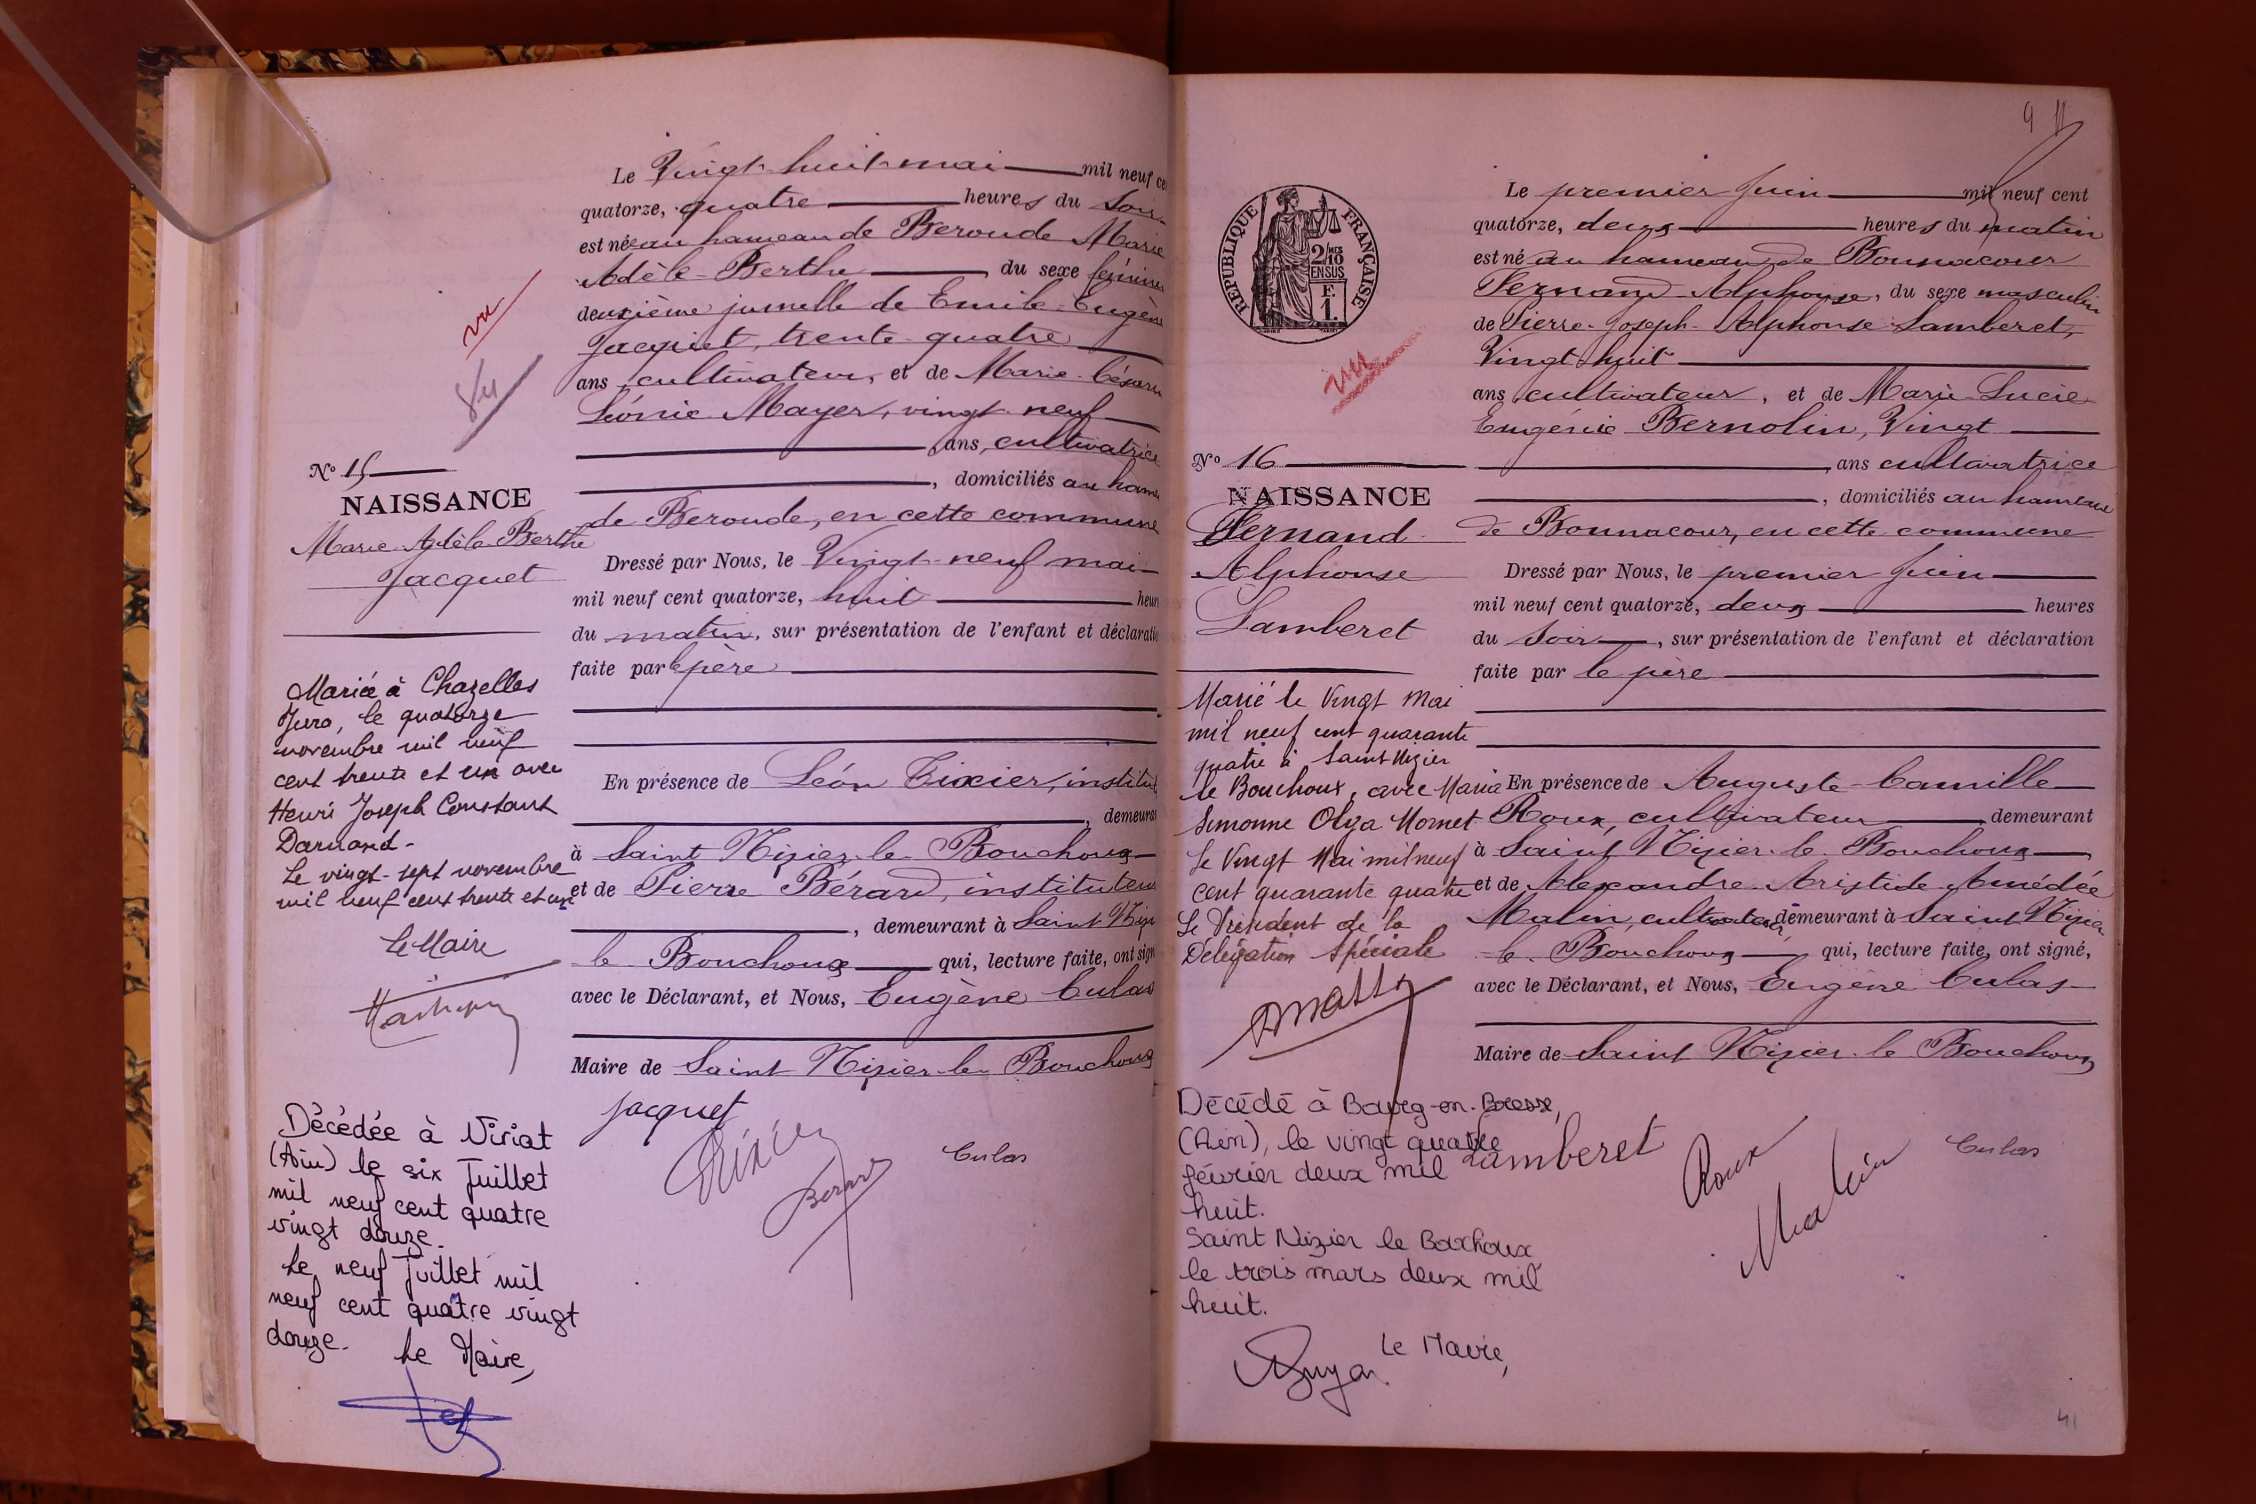 Le Vingt-huit mai mil neuf ce
quatorze, quatre heures du Soir
est née au hameau de Beroude Marie
Adèle-Berthe, du sexe féminin
deuxième jumelle de Emile-Eugène
Jacquet, trente-quatre
ans, cultivateur, et de Marie-Césarie
Léonie Mayer, vingt-neuf
ans, cultivatrice
, domiciliés au hame
de Beroude, en cette commune
Dressé par Nous, le Vingt-neuf mai
mil neuf cent quatorze, huit heur
du matin, sur présentation de l'enfant et déclaratio
faite par le père
En présence de Léon Tixier, institut
, demeuran
à Saint Nizier-le-Bouchoux
et de Pierre Bérard, instituteur
, demeurant à Saint Nizi
le Bouchoux qui, lecture faite, ont sign
avec le Déclarant, et Nous, Eugène Culas
Maire de Saint Nizier-le-Bouchoux
Jacquet
Tixier
Berard
Culas
vu
vu
No 15
NAISSANCE
Marie-Adèle-Berthe
Jacquet
Mariée à Chazelles
Jura, le quatorze
novembre mil neuf
cent trente et un avec
Henri Joseph Constant
Darnand.
Le vingt-sept novembre
mil neuf cent trente et un
Le Maire
Décédée à Viriat
(Ain) le six Juillet
mil neuf cent quatre
vingt douze.
Le neuf Juillet mil
neuf cent quatre vingt
douze.
Le Maire,
9
RÉPUBLIQUE FRANÇAISE
2/10 MES
EN SUS
F.
1.
vu
Le premier Juin mil neuf cent
quatorze, deux heures du matin
est né au hameau de Bounacour
Fernand-Alphonse, du sexe masculin
de Pierre-Joseph-Alphonse Lamberet,
Vingt-huit
ans cultivateur, et de Marie-Lucie
Eugénie Bernolin, Vingt
, ans cultivatrice
, domiciliés au hameau
de Bounacour, en cette commune
Dressé par Nous, le premier Juin
mil neuf cent quatorze, deux heures
du Soir, sur présentation de l'enfant et déclaration
faite par le père
En présence de Auguste-Camille
Roux, cultivateur, demeurant
à Saint Nizier-le-Bouchoux
et de Alexandre-Aristide-Amédée
Malin, cultivateur, demeurant à Saint Nizier
le-Bouchoux, qui, lecture faite, ont signé,
avec le Déclarant, et Nous, Eugène Culas
Maire de Saint Nizier-le-Bouchoux
Lamberet
Roux
Malin
Culas
No 16
NAISSANCE
Fernand
Alphonse
Lamberet
Marié le Vingt Mai
mil neuf cent quarante
quatre à Saint Nizier
le Bouchoux, avec Maria
Simonne Olga Mornet
Le Vingt Mai mil neuf
cent quarante quatre
Le Président de la
Délégation Spéciale
Décédé à Bourg-en-Bresse,
(Ain), le vingt quatre
février deux mil
huit.
Saint Nizier le Bouchoux
le trois mars deux mil
huit.
Le Maire,
41